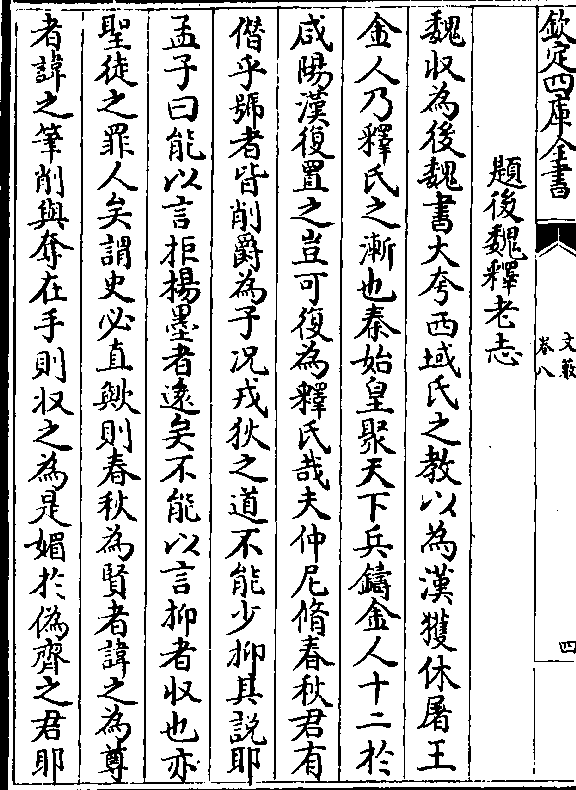 欽定四庫全書
文藪
卷八
四
題後魏釋老志
魏收為後魏書大夸西域氏之教以為漢獲休屠王
金人乃釋氏之漸也秦始皇聚天下兵鑄金人十二於
咸陽漢復置之豈可復為釋氏哉夫仲尼脩春秋君有
僭乎號者皆削爵為子况戎狄之道不能少抑其説耶
孟子曰能以言拒楊墨者遠矣不能以言抑者收也亦
聖徒之罪人矣謂史必直歟則春秋為賢者諱之為尊
者諱之筆削與奪在手則收之為是媚於偽齊之君耶